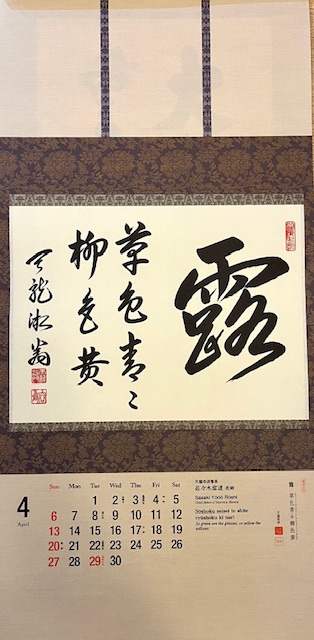 露
草色青々
柳色黄
天龍
4
April
Sun Mon Tue Wed Thu Fri Sat
1 2 3 4 5
6 7 8 9 10 11 12
13 14 15 16 17 18 19
20 21 22 23 24 25 26
27 28 29 30
天龍寺派管長
佐々木容道 老師
Sasaki Yōdō Rōshi
Sōshoku seisei to shite
ryūshoku ki nari
So green are the grasses, so yellow the
willows
露 草色青々柳色黄